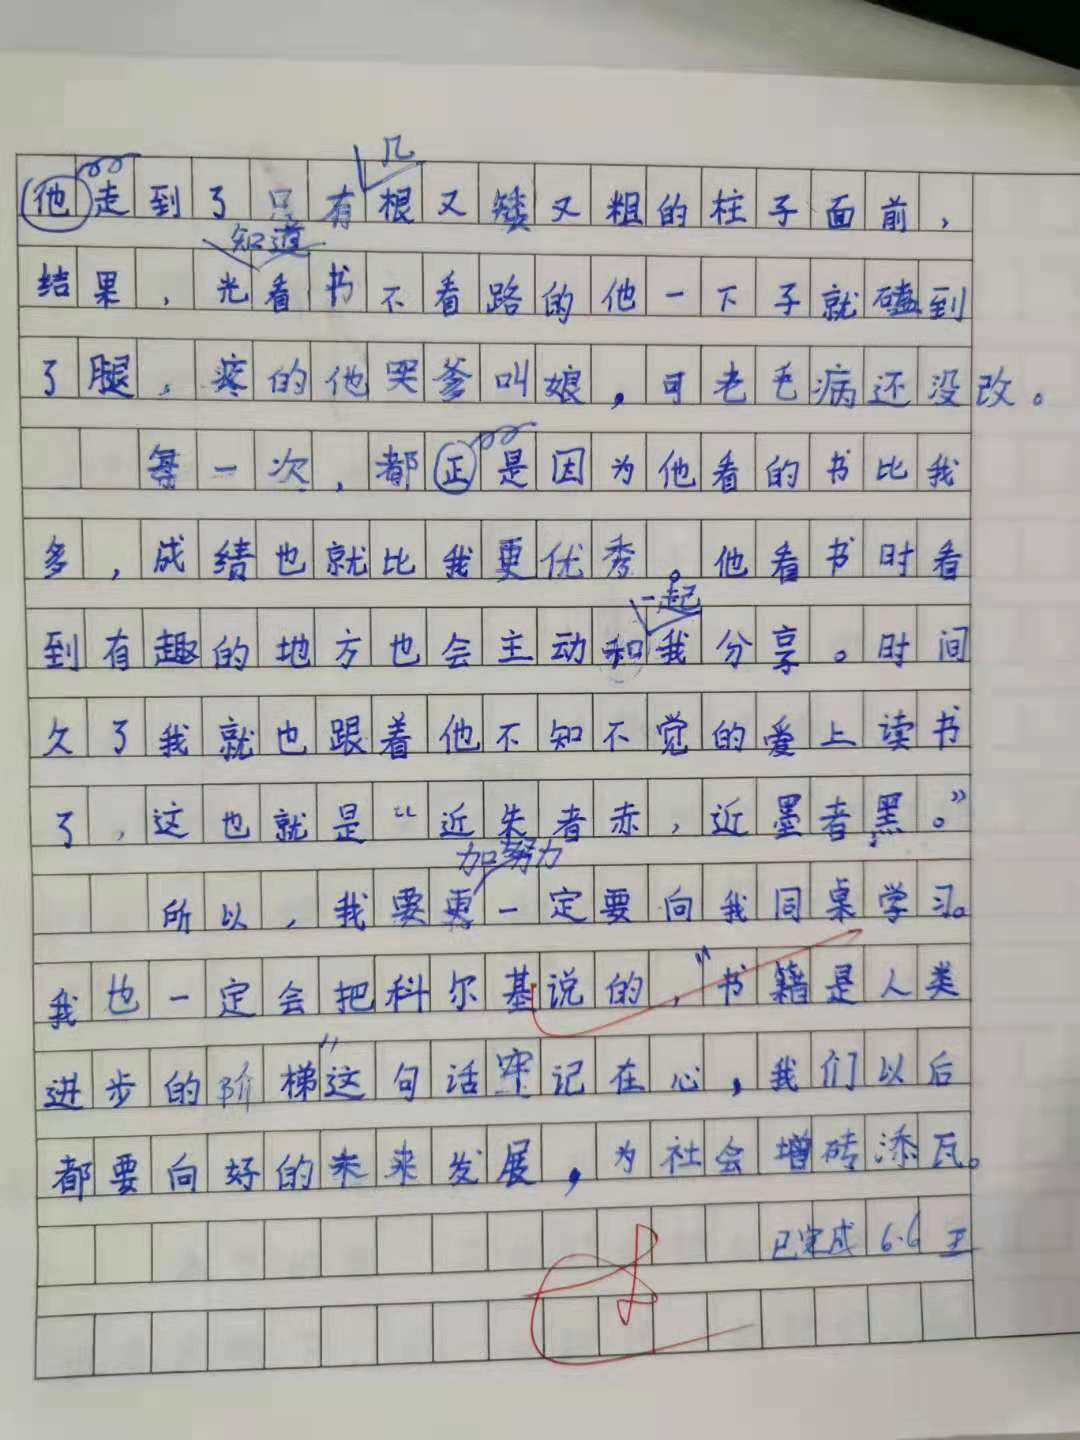 几
他走到了只有根又矮又粗的柱子面前，
知道
结果，光看书不看路的他一下子就磕到
了腿，疼的他哭爹叫娘，可老毛病还没改。
每一次，都正是因为他看的书比我
多，成绩也就比我更优秀。他看书时看
一起
到有趣的地方也会主动和我分享。时间
欠了我就也跟着他不知不觉的爱上读书
了，这也就是“近朱者赤，近墨者黑。”
加努力
所以，我要更一定要向我同桌学习。
我也一定会把科尔基说的，“书籍是人类
进步的阶梯”这句话牢记在心，我们以后
都要向好的未来发展，为社会增砖添瓦。
已完成 6.6